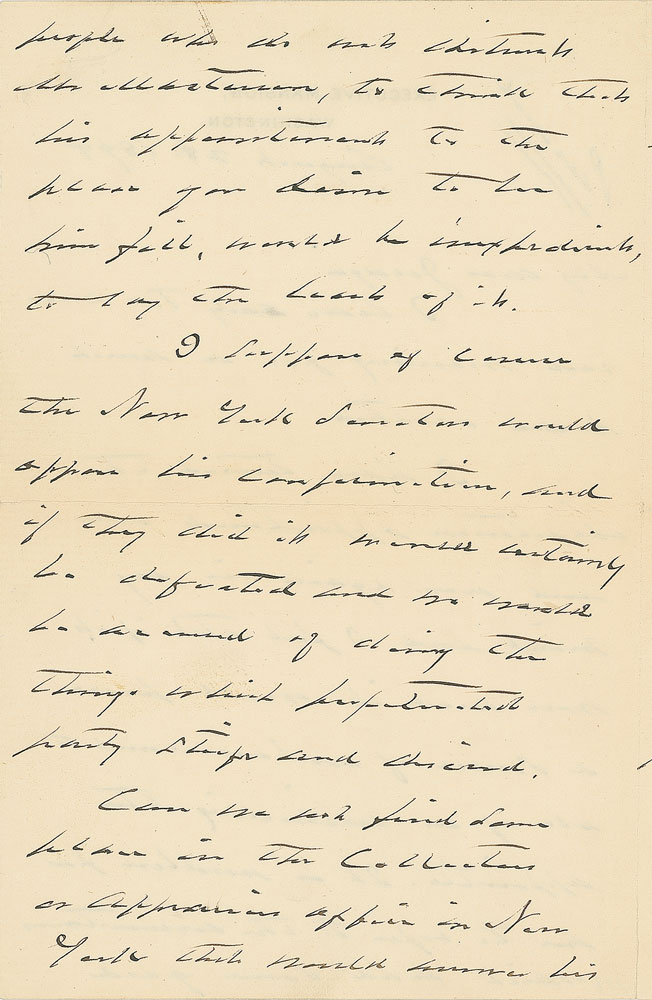 people who do not distrust
Mr Masterson, to think that
his appointment to the
place you desire to have
him fill, would be inexpedient,
to say the least of it.
I suppose of course
the New York Senators would
oppose his confirmation, and
if they did it would certainly
be defeated and we would
be accused of doing the
things which perpetuated
party strife and discord.
Can we not find some
place in the Collectors
or Appraisers office in New
York that would answer his